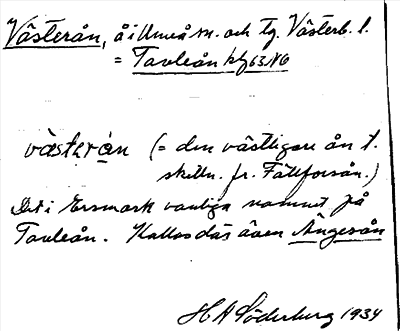 Västerån, å i Umeå sn. och tg. Västerb. l.
= Tavleån kbl 63 NO
västerån (= den västligare ån t.
skilln. fr. Fällforsån.)
Det i Ersmark vanliga namnet på
Tavleån. Kallas där även Ängesån
H A Söderberg 1934